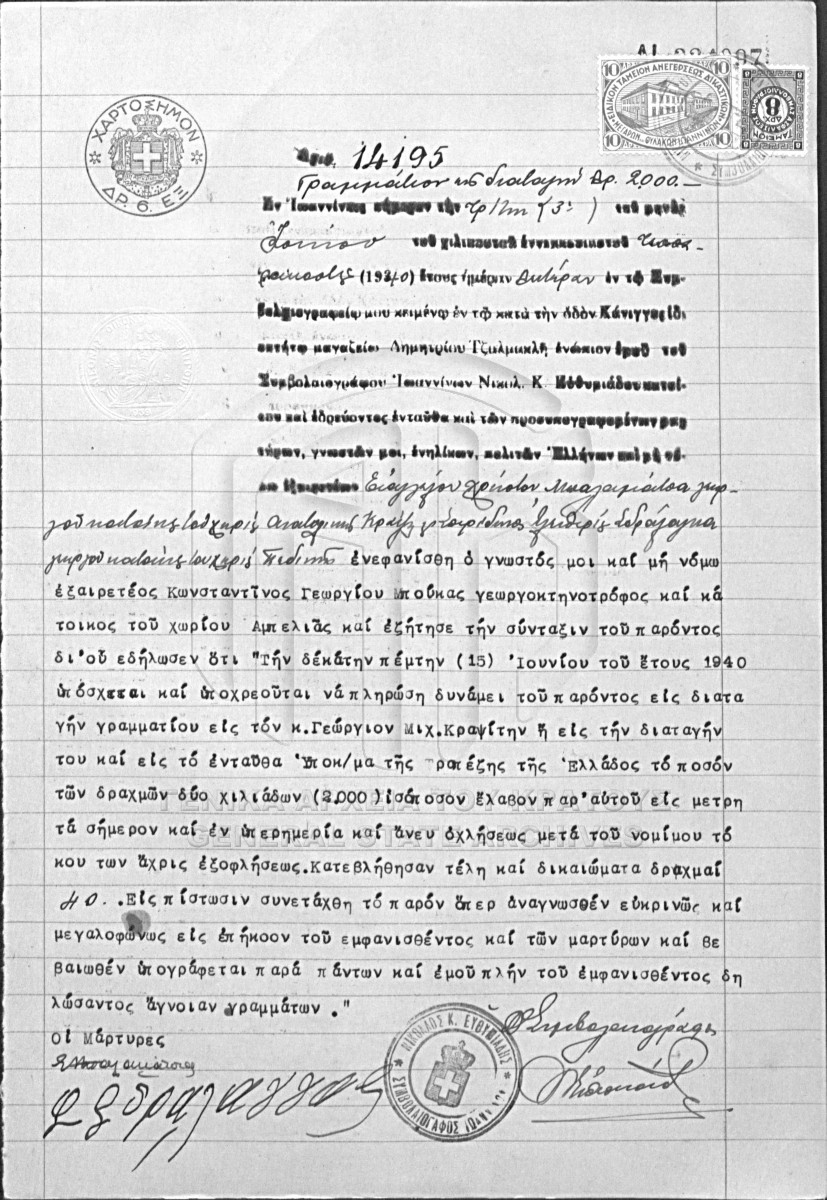 ΧΑΡΤΟΣΗΜΟΝ
ΔΡ. 6. ΕΞ
10 10
ΕΙΔΙΚΟΝ ΤΑΜΕΙΟΝ ΑΝΕΓΕΡΣΕΩΣ ΔΙΚΑΣΤΙΚΩΝ
10 10
8
ΔΡΧ.
Ἀριθ. 14195
Γραμμάτιον εἰς διαταγήν Δρ. 2,000.—
Ἐν Ἰωαννίνοις σήμερον τὴν τρίτην (3ην) τοῦ μηνὸς
Ἰουνίου τοῦ χιλιοστοῦ ἐννεακοσιοστοῦ τεσσα-
ρακοστοῦ (1940) ἔτους ἡμέραν Δευτέραν ἐν τῷ Συμ-
βολαιογραφείῳ μου κειμένῳ ἐν τῷ κατὰ τὴν ὁδὸν Κάνιγγος ἰδι
οκτήτῳ μαγαζείῳ Δημητρίου Τζαλμακλῆ ἐνώπιον ἐμοῦ τοῦ
Συμβολαιογράφου Ἰωαννίνων Νικολ. Κ. Εὐθυμιάδου κατοί-
κου καὶ ἑδρεύοντος ἐνταῦθα καὶ τῶν προσυπογραφομένων μαρ
τύρων, γνωστῶν μοι, ἐνηλίκων, πολιτῶν Ἑλλήνων καὶ μὴ νό-
μῳ ἐξαιρετέων Εὐαγγέλου Χρήστου Μπαλαμάτσα γεωρ-
γοῦ κατοίκου τοῦ χωρίου Ἀνατολικῆς
γεωργοῦ κατοίκου τοῦ χωρίου Πεδινῆς ἐνεφανίσθη ὁ γνωστός μοι καί μή νόμω
ἐξαιρετέος Κωνσταντῖνος Γεωργίου Μπούκας γεωργοκτηνοτρόφος καί κά
τοικος τοῦ χωρίου Αμπελιᾶς καί ἐζήτησε τήν σύνταξιν τοῦ παρόντος
δι'οὗ εδήλωσεν ὅτι "Τήν δεκάτην πέμπτην (15) Ἰουνίου τοῦ ἔτους 1940
ὑπόσχεται καί ὑποχρεοῦται νά πληρώση δυνάμει τοῦ παρόντος εἰς διατα
γήν γραμματίου εἰς τόν κ.Γεώργιον Μιχ.Κραψίτην ἤ εἰς τήν διαταγήν
του καί εἰς τό ἐνταῦθα Ὑποκ/μα τῆς Τραπέζης τῆς Ἑλλάδος τό ποσόν
τῶν δραχμῶν δύο χιλιάδων (2.000) ἰσόποσον ἔλαβον παρ'αὐτοῦ εἰς μετρη
τά σήμερον καί ἐν ὑπερημερία καί ἄνευ ὀχλήσεως μετά τοῦ νομίμου τό
κου των ἄχρις ἐξοφλήσεως.Κατεβλήθησαν τέλη καί δικαιώματα δραχμαί
40. .Εἰς πίστωσιν συνετάχθη τό παρόν ὅπερ ἀναγνωσθέν εὐκρινῶς καί
μεγαλοφώνως εἰς ἐπήκοον τοῦ εμφανισθέντος καί τῶν μαρτύρων καί βε
βαιωθέν ὑπογράφεται παρά πάντων καί ἐμοῦ πλήν τοῦ εμφανισθέντος δη
λώσαντος ἄγνοιαν γραμμάτων ."
Οἱ Μάρτυρες
Ὁ Συμβολαιογράφος
ΝΙΚΟΛΑΟΣ Κ. ΕΥΘΥΜΙΑΔΗΣ
ΣΥΜΒΟΛΑΙΟΓΡΑΦΟΣ ΙΩΑΝΝΙΝΩΝ
ΓΕΝΙΚΑ ΑΡΧΕΙΑ ΤΟΥ ΚΡΑΤΟΥΣ
GENERAL STATE ARCHIVES